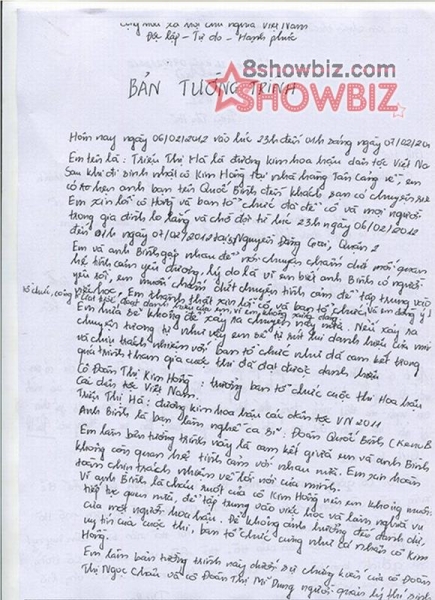 Cộng hòa xã hội chủ nghĩa Việt Nam
Độc lập - Tự do - Hạnh phúc
8showbiz.com
SHOWBIZ
BẢN TƯỜNG TRÌNH
Hôm nay ngày 06/02/2012 vào lúc 23h đến 01h sáng ngày 07/02/201
Em tên là: Triệu Thị Hà là đương kim hoa hậu dân tộc Việt Na
Sau khi đi sinh nhật cô Kim Hồng tại nhà hàng Tân Cảng về, em
có hẹn anh bạn tên Quốc Bình đến khách sạn có chuyện
Em xin lỗi cô Hồng và ban tổ chức đã để cô và mọi người
trong gia đình lo lắng và chờ đợi từ lúc 23h ngày 06/02/2012
đến 01h ngày 07/02/2012 tại Nguyễn Đăng Giai, Quận 2
Em và anh Bình gặp nhau để nói chuyện chấm dứt mối quan
hệ tình cảm yêu đương, lý do là vì em biết anh Bình có người
yêu rồi, em muốn chấm dứt chuyện tình cảm để tập trung vào
việc học, Em thành thật xin lỗi cô và ban tổ chức và em đồng ý
danh hiệu của em vì em không xứng đáng
Em hứa sẽ không để xảy ra chuyện này nữa. Nếu xảy ra
chuyện tương tự như vậy em sẽ tự rút lui danh hiệu của mình
và chịu trách nhiệm với ban tổ chức như đã cam kết trong
quá trình tham gia cuộc thi đã đạt được danh hiệu
Cô Đoàn Thị Kim Hồng: trưởng ban tổ chức cuộc thi Hoa hậu
các dân tộc Việt Nam.
Triệu Thị Hà: đương kim hoa hậu các dân tộc VN 2011
Anh Bình là bạn làm nghề ca sĩ: Đoàn Quốc Bình (Ken B
Em làm bản tường trình này là cam kết giữa em và anh Bình
không còn quan hệ tình cảm với nhau nữa. Em xin hoàn
toàn chịu trách nhiệm về lời nói của mình.
Vì anh Bình là cháu ruột của cô Kim Hồng nên em không muốn
tiếp tục quen nữa, để tập trung vào việc học và làm người vụ
của một người hoa hậu. Để không ảnh hưởng đến danh dự,
uy tín của cuộc thi, ban tổ chức cũng như cá nhân cô Kim
Hồng.
Em làm bản tường trình này dưới sự chứng kiến của cô Đoàn
Thị Ngọc Châu và cô Đoàn Thị Mĩ Dung người quản lý thí sinh